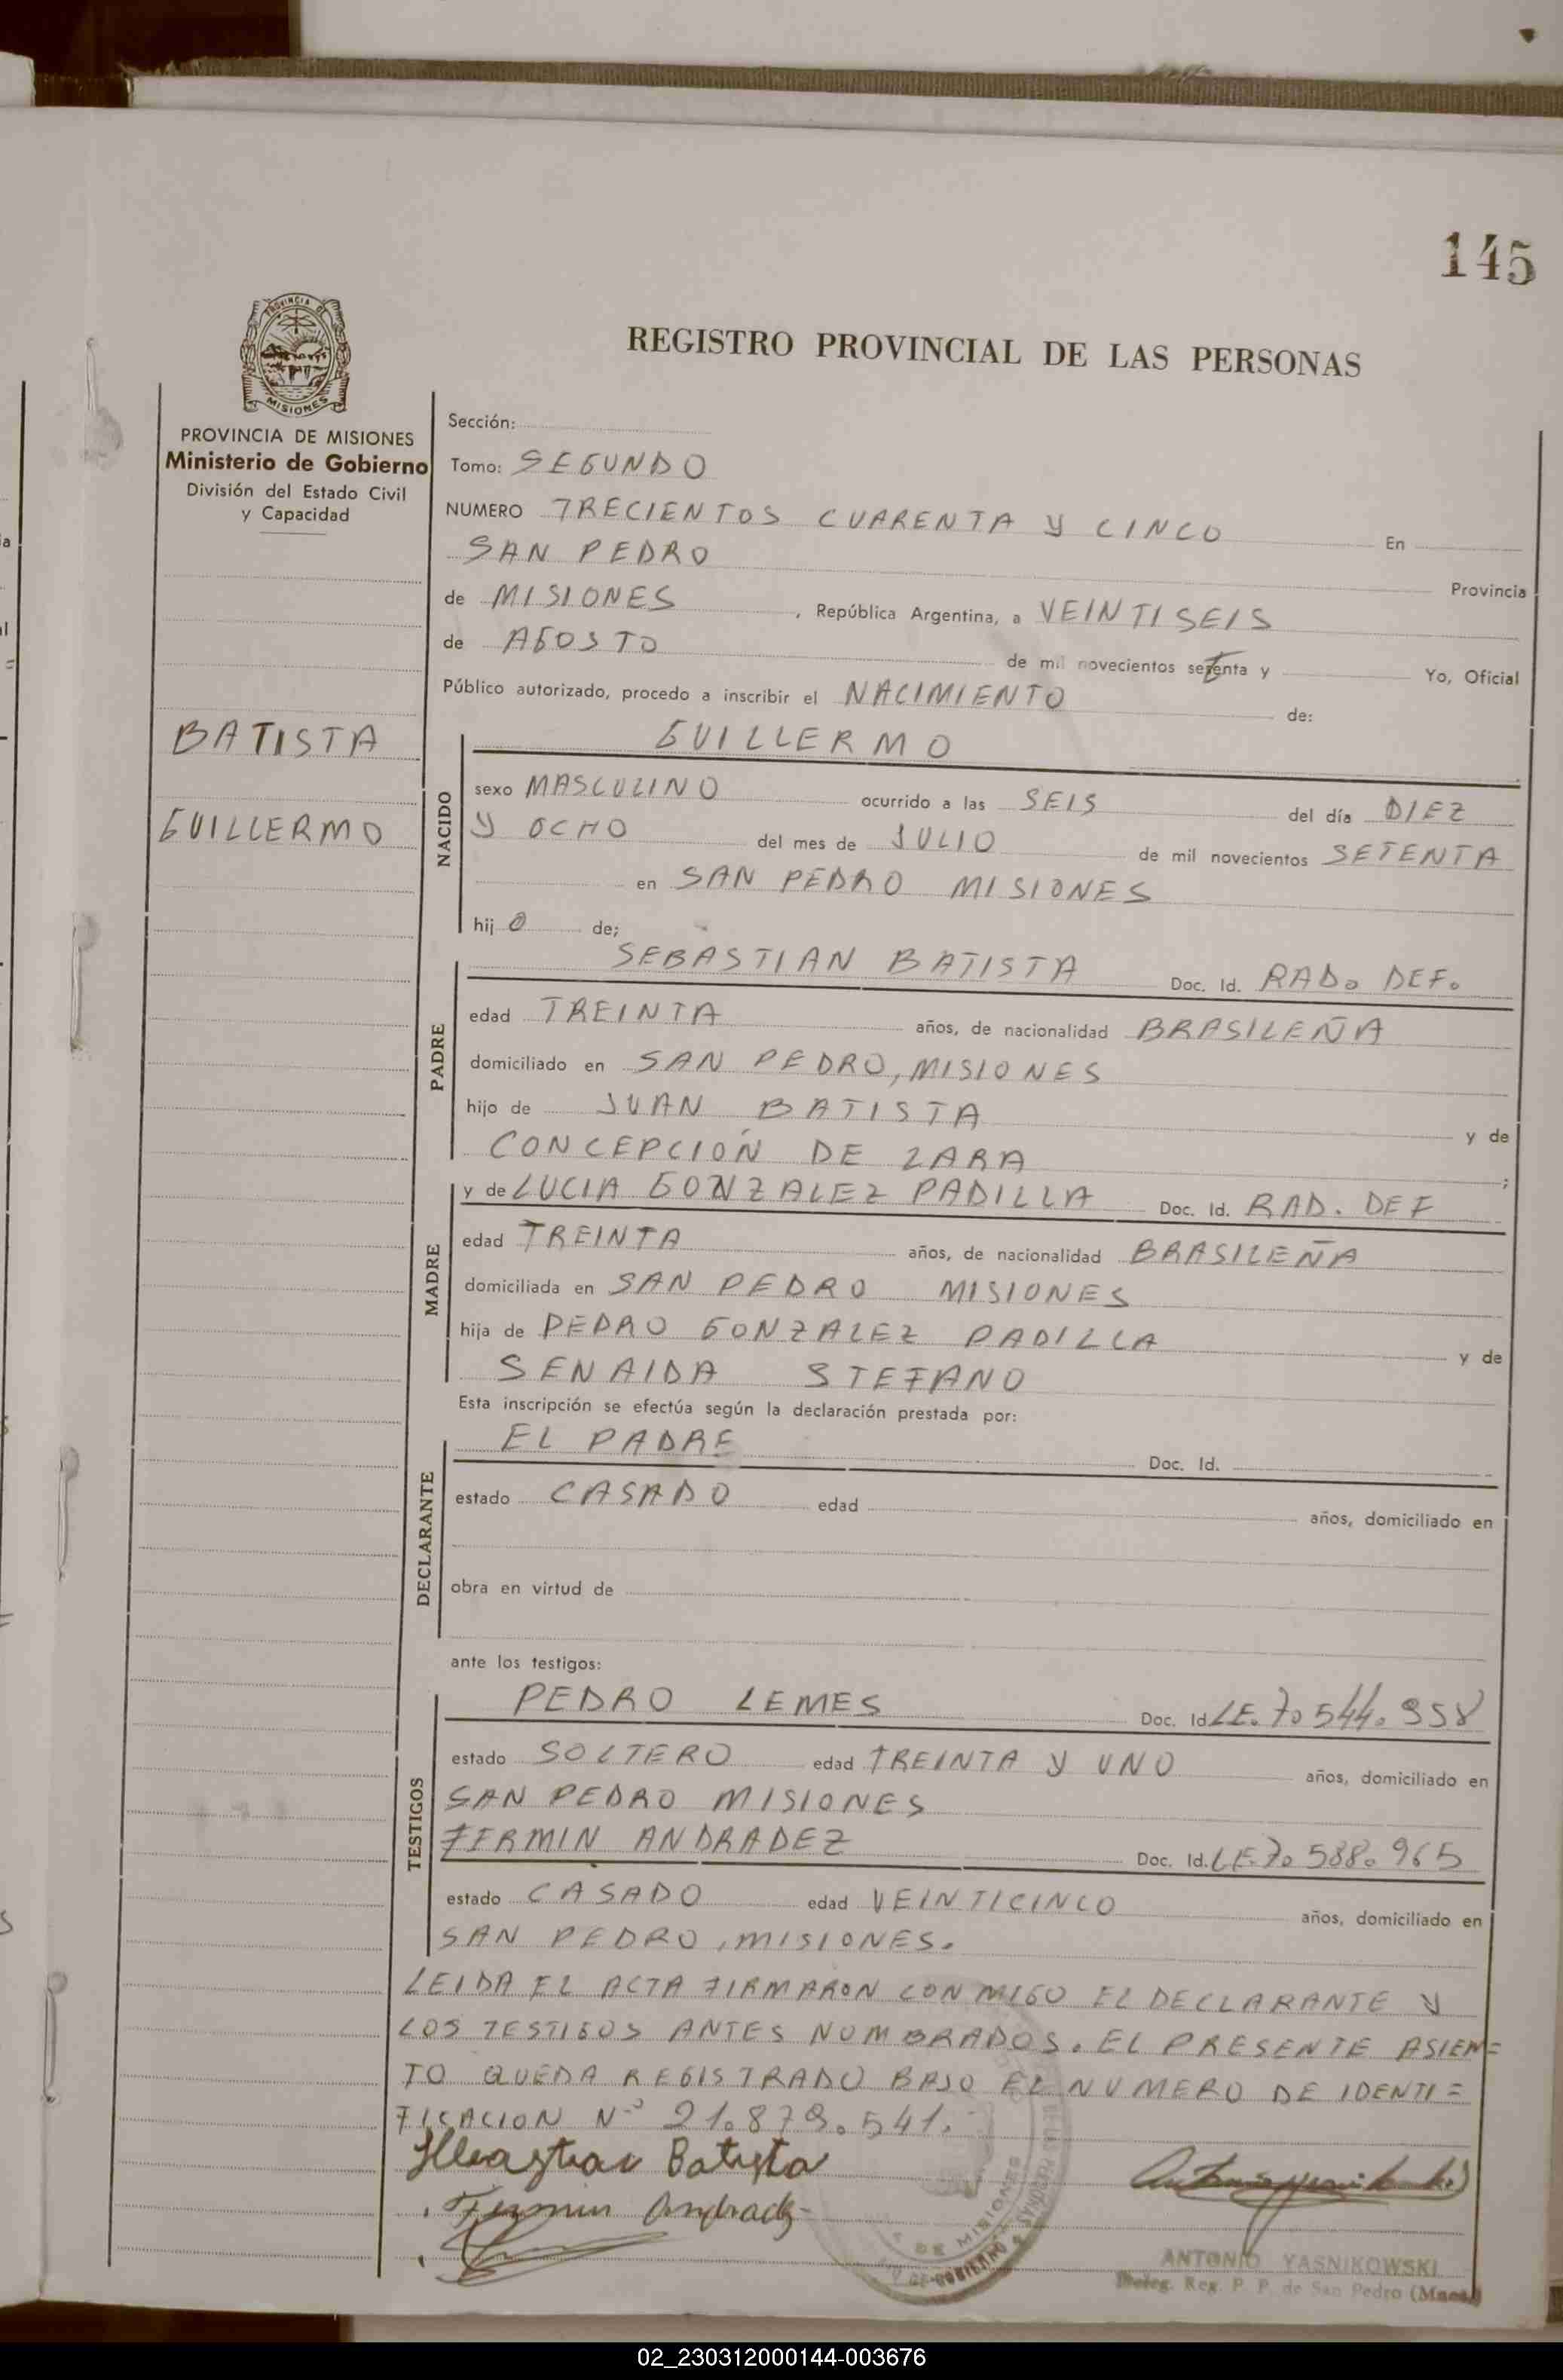 145
PROVINCIA DE
MISIONES
REGISTRO PROVINCIAL DE LAS PERSONAS
PROVINCIA DE MISIONES
Ministerio de Gobierno
División del Estado Civil
y Capacidad
BATISTA
GUILLERMO
Sección:
Tomo: SEGUNDO
NUMERO TRECIENTOS CUARENTA Y CINCO En
SAN PEDRO Provincia
de MISIONES, República Argentina, a VEINTISEIS
de AGOSTO de mil novecientos setenta y Yo, Oficial
Público autorizado, procedo a inscribir el NACIMIENTO de:
GUILLERMO
NACIDO
sexo MASCULINO ocurrido a las SEIS del día DIEZ
Y OCHO del mes de JULIO de mil novecientos SETENTA
en SAN PEDRO MISIONES
hijO de;
SEBASTIAN BATISTA Doc. Id. RAD. DEF.
PADRE
edad TREINTA años, de nacionalidad BRASILEÑA
domiciliado en SAN PEDRO, MISIONES
hijo de JUAN BATISTA y de
CONCEPCIÓN DE LARA ;
y de LUCIA GONZALEZ PADILLA Doc. Id. RAD. DEF
MADRE
edad TREINTA años, de nacionalidad BRASILEÑA
domiciliada en SAN PEDRO MISIONES
hija de PEDRO GONZALEZ PADILLA y de
SENAIDA STEFANO
Esta inscripción se efectúa según la declaración prestada por:
EL PADRE Doc. Id.
DECLARANTE
estado CASADO edad años, domiciliado en
obra en virtud de
ante los testigos:
PEDRO LEMES Doc. Id LE. 7. 544. 958
TESTIGOS
estado SOLTERO edad TREINTA Y UNO años, domiciliado en
SAN PEDRO MISIONES
FERMIN ANDRADEZ Doc. Id. LE. 7. 588. 965
estado CASADO edad VEINTICINCO años, domiciliado en
SAN PEDRO, MISIONES.
LEIDA EL ACTA FIRMARON CONMIGO EL DECLARANTE Y
LOS TESTIGOS ANTES NOMBRADOS. EL PRESENTE ASIEN=
TO QUEDA REGISTRADO BAJO EL NUMERO DE IDENTI=
FICACION Nº 21.879.541.
Sebastian Batista
Fermin Andradez
DE MISIONES
ANTONIO YASNIKOWSKI
Deleg. Reg. P. P. de San Pedro (Mnes.)
02_230312000144-003676